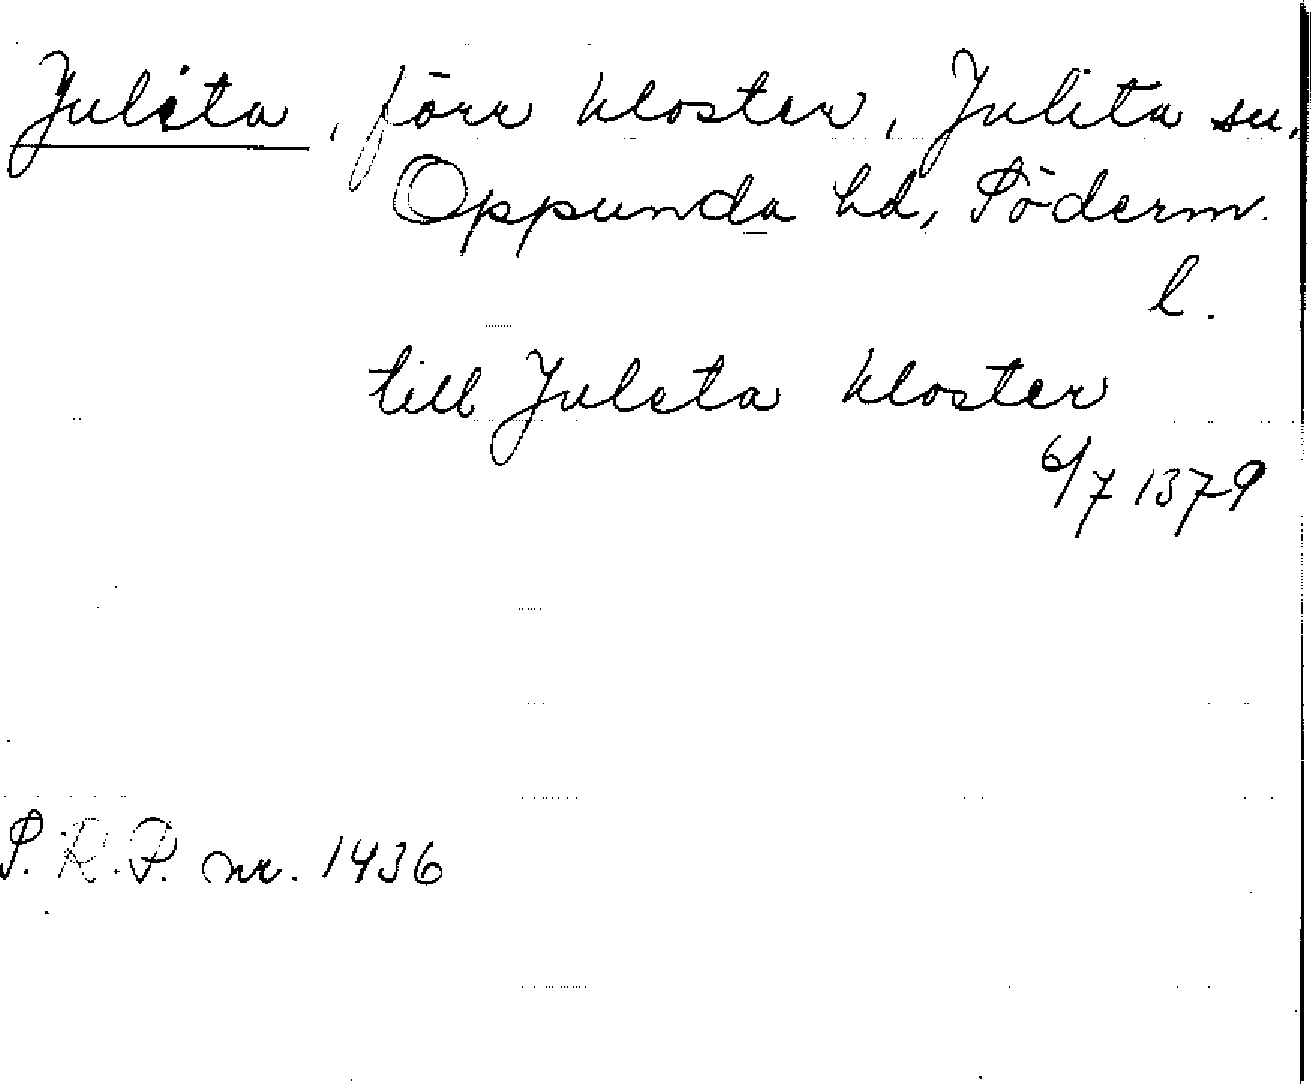 Julita, förr kloster, Julita sn,
Oppunda hd, Söderm.
l.
till Juleta kloster
6/7 1379
S.R.P. nr. 1436